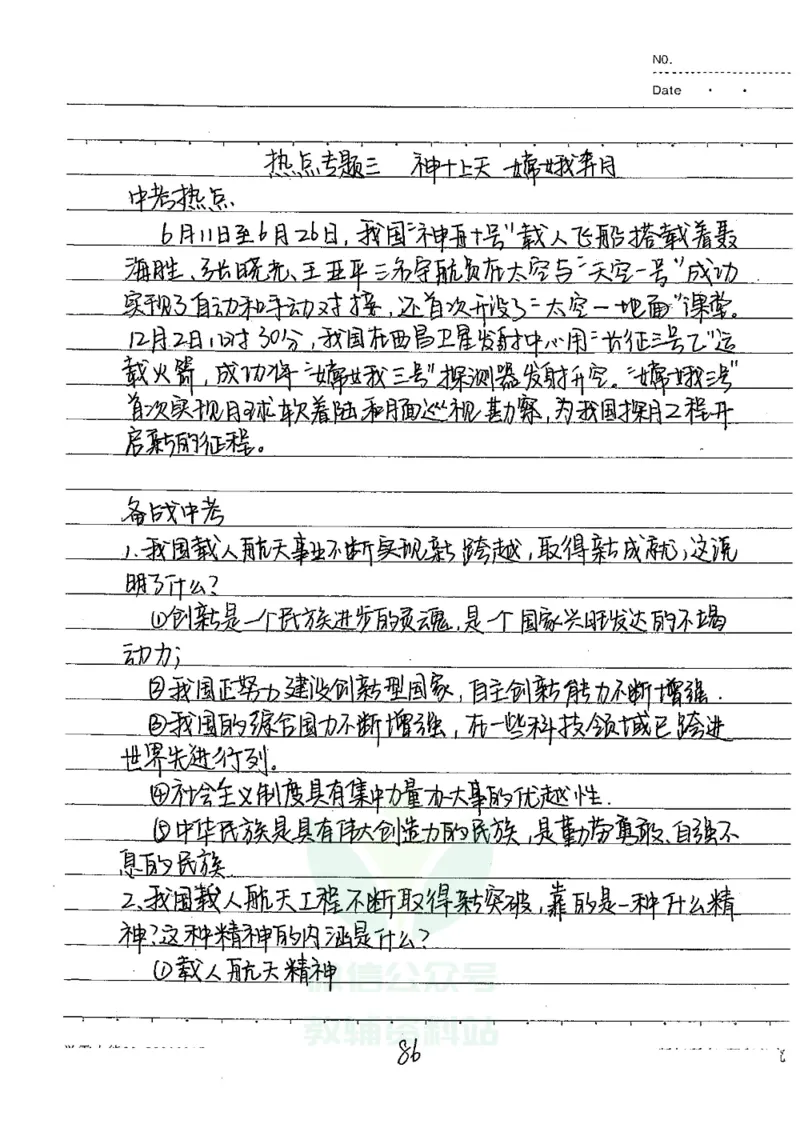 NO.
Date
热点专题三 神十上天 嫦娥奔月
中考热点.
6月11日至6月26日,我国“神舟十号”载人飞船搭载着聂
海胜、张晓光、王亚平三名宇航员在太空与“天空一号”成功
实现了自动和手动对接,还首次开设了“太空一地面”课堂。
12月2日1时30分,我国在西昌卫星发射中心用“长征三号乙”运
载火箭,成功将“嫦娥三号”探测器发射升空。“嫦娥三号”
首次实现月球软着陆和月面巡视勘察,为我国探月工程开
启新的征程。
备战中考
1.我国载人航天事业不断实现新跨越,取得新成就,这说
明了什么?
①创新是一个民族进步的灵魂,是一个国家兴旺发达的不竭
动力;
②我国正努力建设创新型国家,自主创新能力不断增强.
③我国的综合国力不断增强,在一些科技领域已跨进
世界先进行列。
④社会主义制度具有集中力量办大事的优越性.
⑤中华民族是具有伟大创造力的民族,是勤劳勇敢、自强不
息的民族.
2、我国载人航天工程不断取得新突破,靠的是一种什么精
神?这种精神的内涵是什么?
①载人航天精神
微信公众号
教辅资料站
86